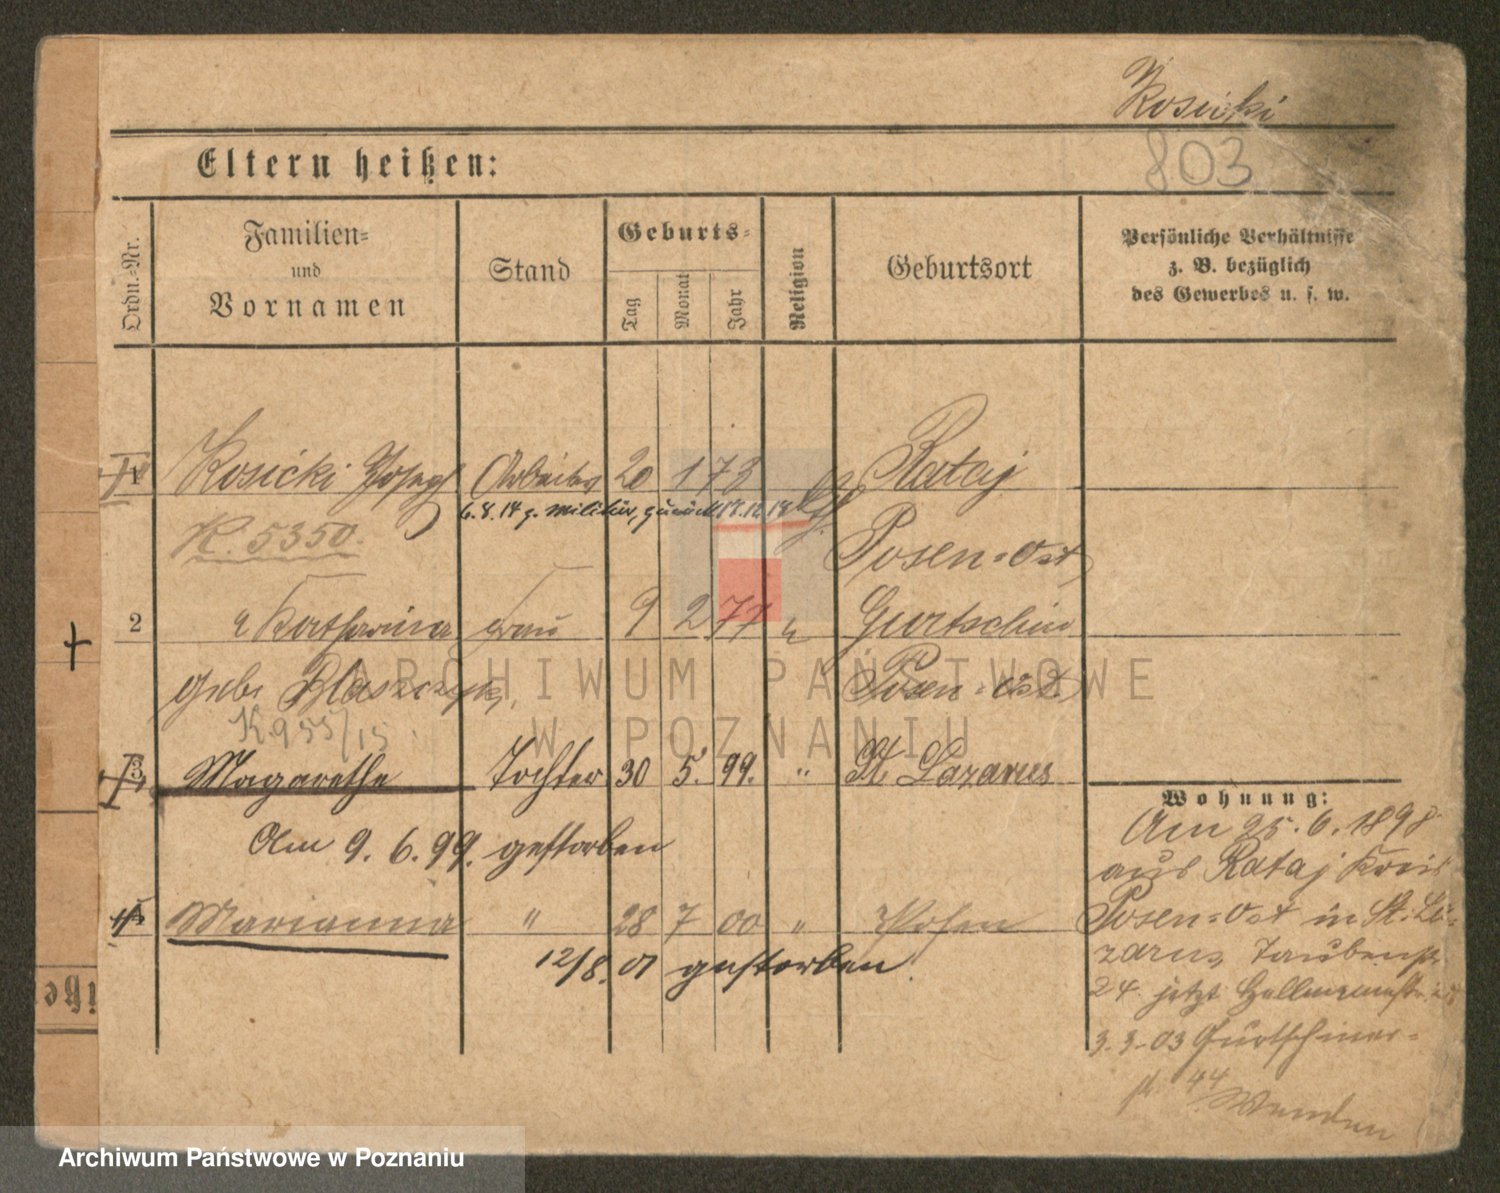 Kosicki
803
Eltern heißen:
Ordn.-Nr.
Familien-
und
Vornamen
Stand
Geburts-
Tag
Monat
Jahr
Religion
Geburtsort
Persönliche Verhältnisse
z. B. bezüglich
des Gewerbes u. s. w.
1 Kosicki Josef Arbeiter 20 1 73 kth. Rataj
6.8.14 z. Militär, zurück 18.12.18
K. 5350. Posen-Ost
2 " Katharina Frau 9 2 77 " Gurtschin
geb. Blaszczyk, Posen-Ost
K. 955/15
3 Magarethe Tochter 30 5. 99. " St. Lazarus
Am 9. 6. 99. gestorben
4 Marianna " 28 7 00 " Posen
12/8. 01 gestorben.
Wohnung:
Am 25. 6. 1898
aus Rataj Kreis
Posen-Ost in St. La-
zarus, Taubenstr.
24. jetzt
3.3.03 Gurtschiner-
str. 44
Wenden
iße
ARCHIWUM PAŃSTWOWE
W POZNANIU
Archiwum Państwowe w Poznaniu